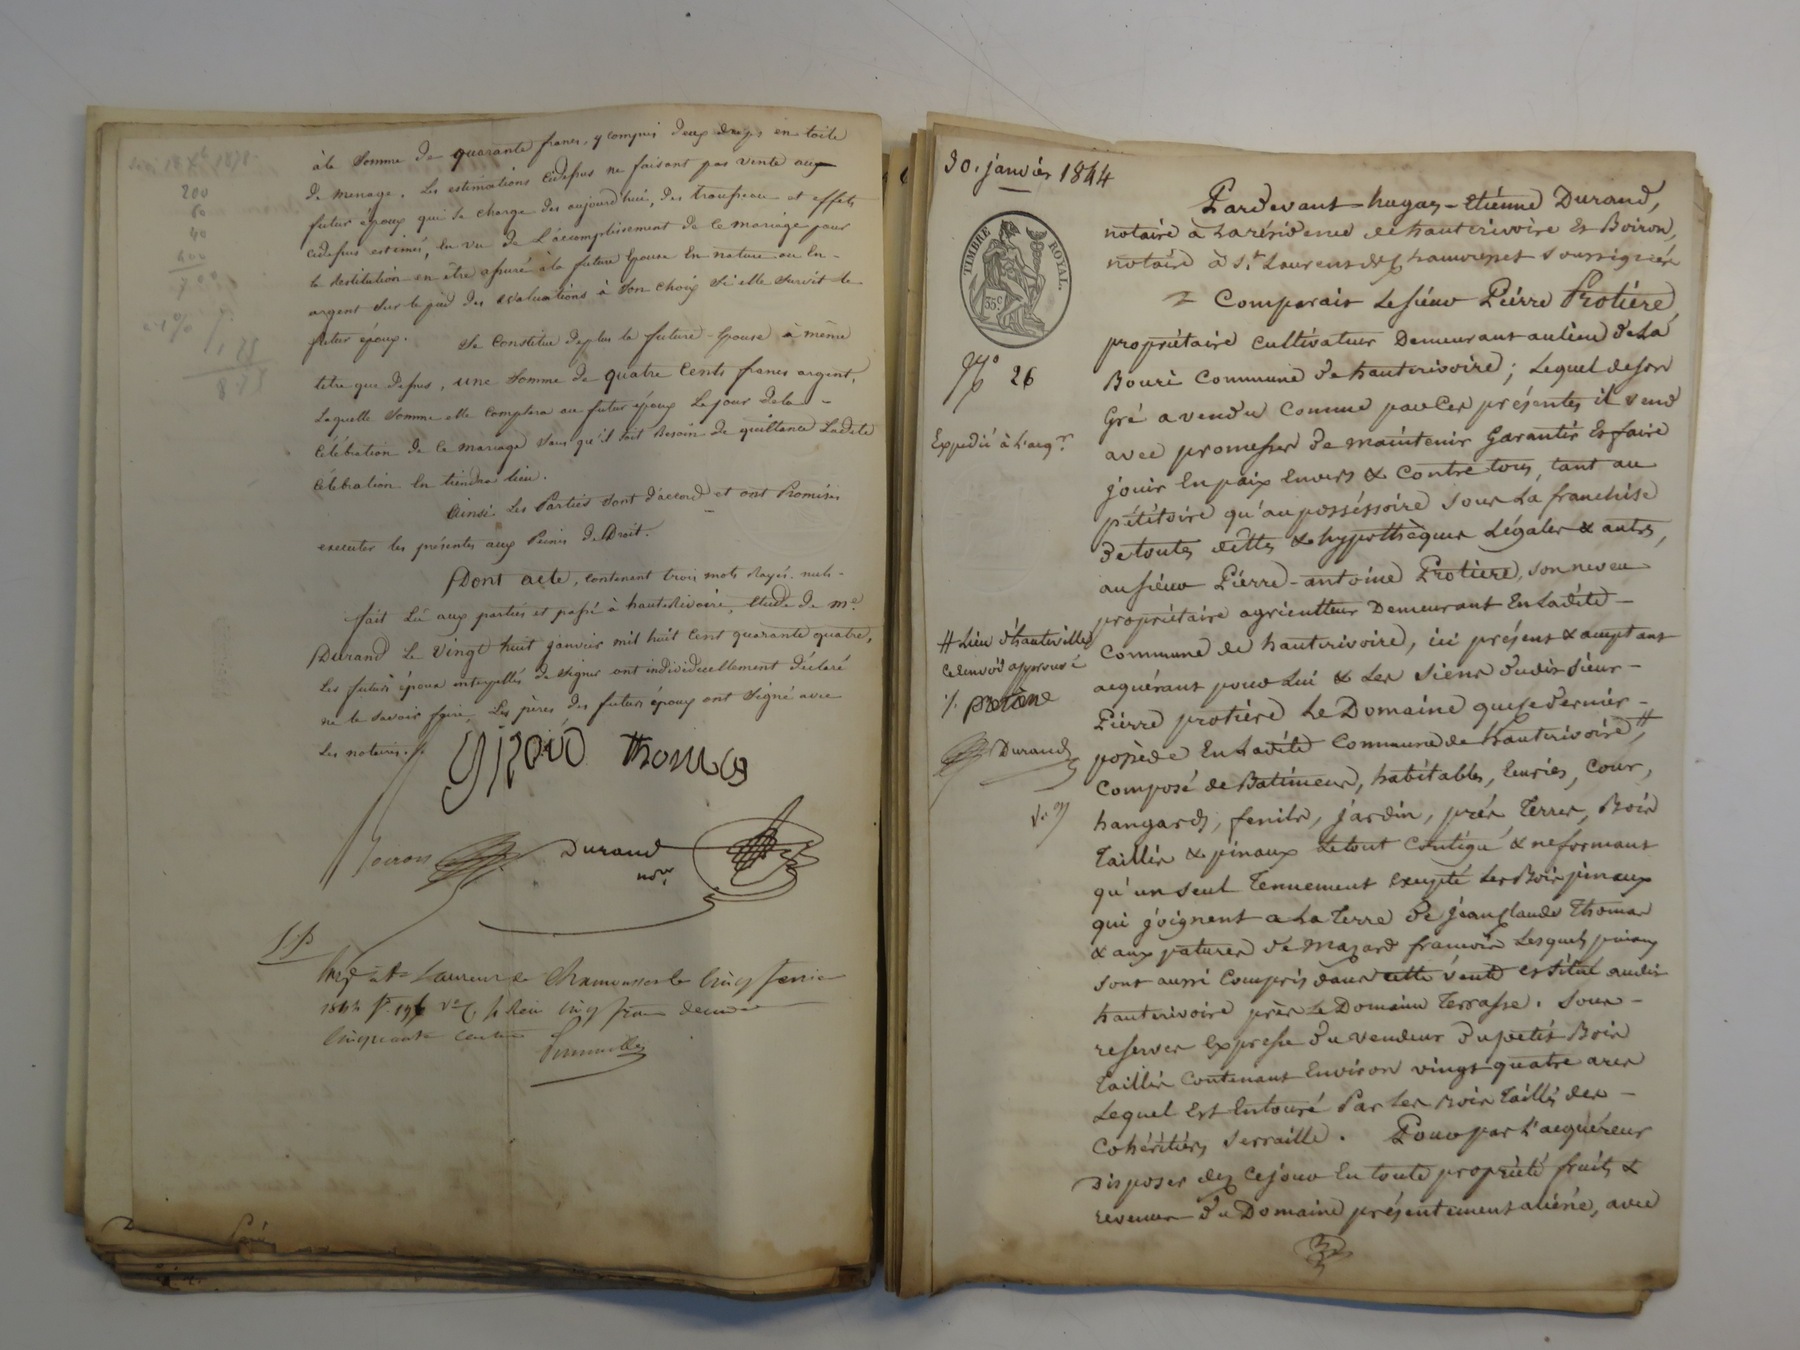 à la somme de quarante francs, y compris deux draps en toile
de menage. Les estimations cidessus ne faisant pas vente aux
futur époux qui se charge des aujourd'hui, des trousseau et effets
cidessus estimés, en vu de l'accomplissement de ce mariage pour
la restitution en être opuré à la future épouse en nature ou en-
argent sur le pied des evaluations à son choix si elle survit le
futur époux. Se constitue deplus la future-épouse à même
titre que dessus, une somme de quatre cents francs argent,
laquelle somme elle comptera au futur époux le jour dela -
célébration de ce mariage sans qu'il soit besoin de quittance ladite
célébration en tiendra lieu.
Ainsi les Parties sont d'accord et ont Promis
executer les présentes aux Peines de Droit.
Dont acte, contenant trois mots rayés nuls-
fait lû aux parties et passé à hauterivoire, étude de me.
Durand le vingt huit janvier mil huit cent quarante quatre,
les futurs époux interpellés de signer ont individuellement déclaré
ne le savoir faire, les pères des futurs époux ont signé avec
les notaires./.
Giroud Thomas
Boiron Durand
nore
S.P
à St Laurent de Chamousset le cinq
1844 fo. 196 Vo reçu cinq francs decime
cinquante centimes
200
60
40
400
700
30. janvier 1844
TIMBRE ROYAL.
35c
No 26
Expedié à l'aeqr.
# lieu d'hauteville
ce renvoi approuvé
./. protière
Durand
Pardevant hugues-étienne Durand,
notaire à la résidence de hauterivoire et Boiron,
notaire à St. Laurent de Chamousset soussignés
Comparait le sieur Piérre Protière
propriétaire cultivateur demeurant au lieu de la
Bouri commune de hauterivoire; lequel de son
gré a vendu comme par ces présentes il vend
avec promesse de maintenir garantir et faire
jouir en paix envers & contre tous, tant au
pétitoire qu'au posséssoire sous la franchise
de toutes dettes & hypothèques légales & autres,
au sieur Piérre-antoine Protière, son neveu
propriétaire agriculteur demeurant en ladite-
commune de hauterivoire, ici présent & acceptant
acquérant pour lui & les siens dudit sieur-
Piérre protière le Domaine que ce dernier-
possède en ladite commune de hauterivoire #,
composé de Batiments, habitables, écuries, cour,
hangards, fenils, jardin, prés terres, Bois
taillis & pinaux le tout contigu & ne formant
qu'un seul tennement excepté les Bois pinaux
qui joignent a la terre de jean Claude Thomas
& aux patures de mazard francois lesquels pinaux
sont aussi compris dans cette vente et situé audit
hauterivoire près le Domaine Terrasse. Sous-
reserves expresse du vendeur du petit Bois
taillis contenant environ vingt quatre ares
lequel est entouré par les Bois taillis des-
cohéritiers serraille. Pour par l'acquéreur
disposer dez ce jour en toute propriété fruits &
revenus du Domaine présentement aliéné, avec